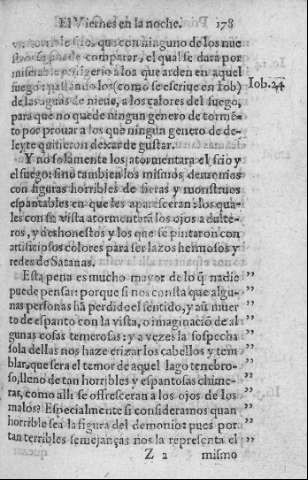 El Viernes en la noche. 178
que con ninguno de los nue
puede comparar, el qual se dara por
refrigerio a los que arden en aquel
fuego: quando los (como se escriue en Iob) Iob. 24
de las aguas de nieue, a los calores del fuego,
para que no quede ningun genero de tormẽ
to por prouar a los que ningun genero de de-
leyte quisieron dexar de gustar.
Y no solamente los atormentara el frio y
el fuego: sino tambien los mismos demonios
con figuras horribles de fieras y monstruos
espantables en que les apareceran: los qua-
les con su vista atormentarã los ojos adulte-
ros, y deshonestos y los que se pintaron con
artificiosos colores para ser lazos hermosos y
redes de Satanas.
Esta pena es mucho mayor de lo q̃ nadie ”
puede pensar: porque si nos consta que algu- ”
nas personas hã perdido el sentido, y aũ muer ”
to de espanto con la vista, o imaginaciõ de al ”
gunas cosas temerosas: y a vezes la sospecha ”
sola dellas nos haze erizar los cabellos y tem ”
blar, que sera el temor de aquel lago tenebro- ”
so, lleno de tan horribles y espantosas chime- ”
ras, como alli se offresceran a los ojos de los ”
malos? Especialmente si consideramos quan ”
horrible sea la figura del demonio: pues por ”
tan terribles semejanças nos la representa el ”
Z 2 mismo